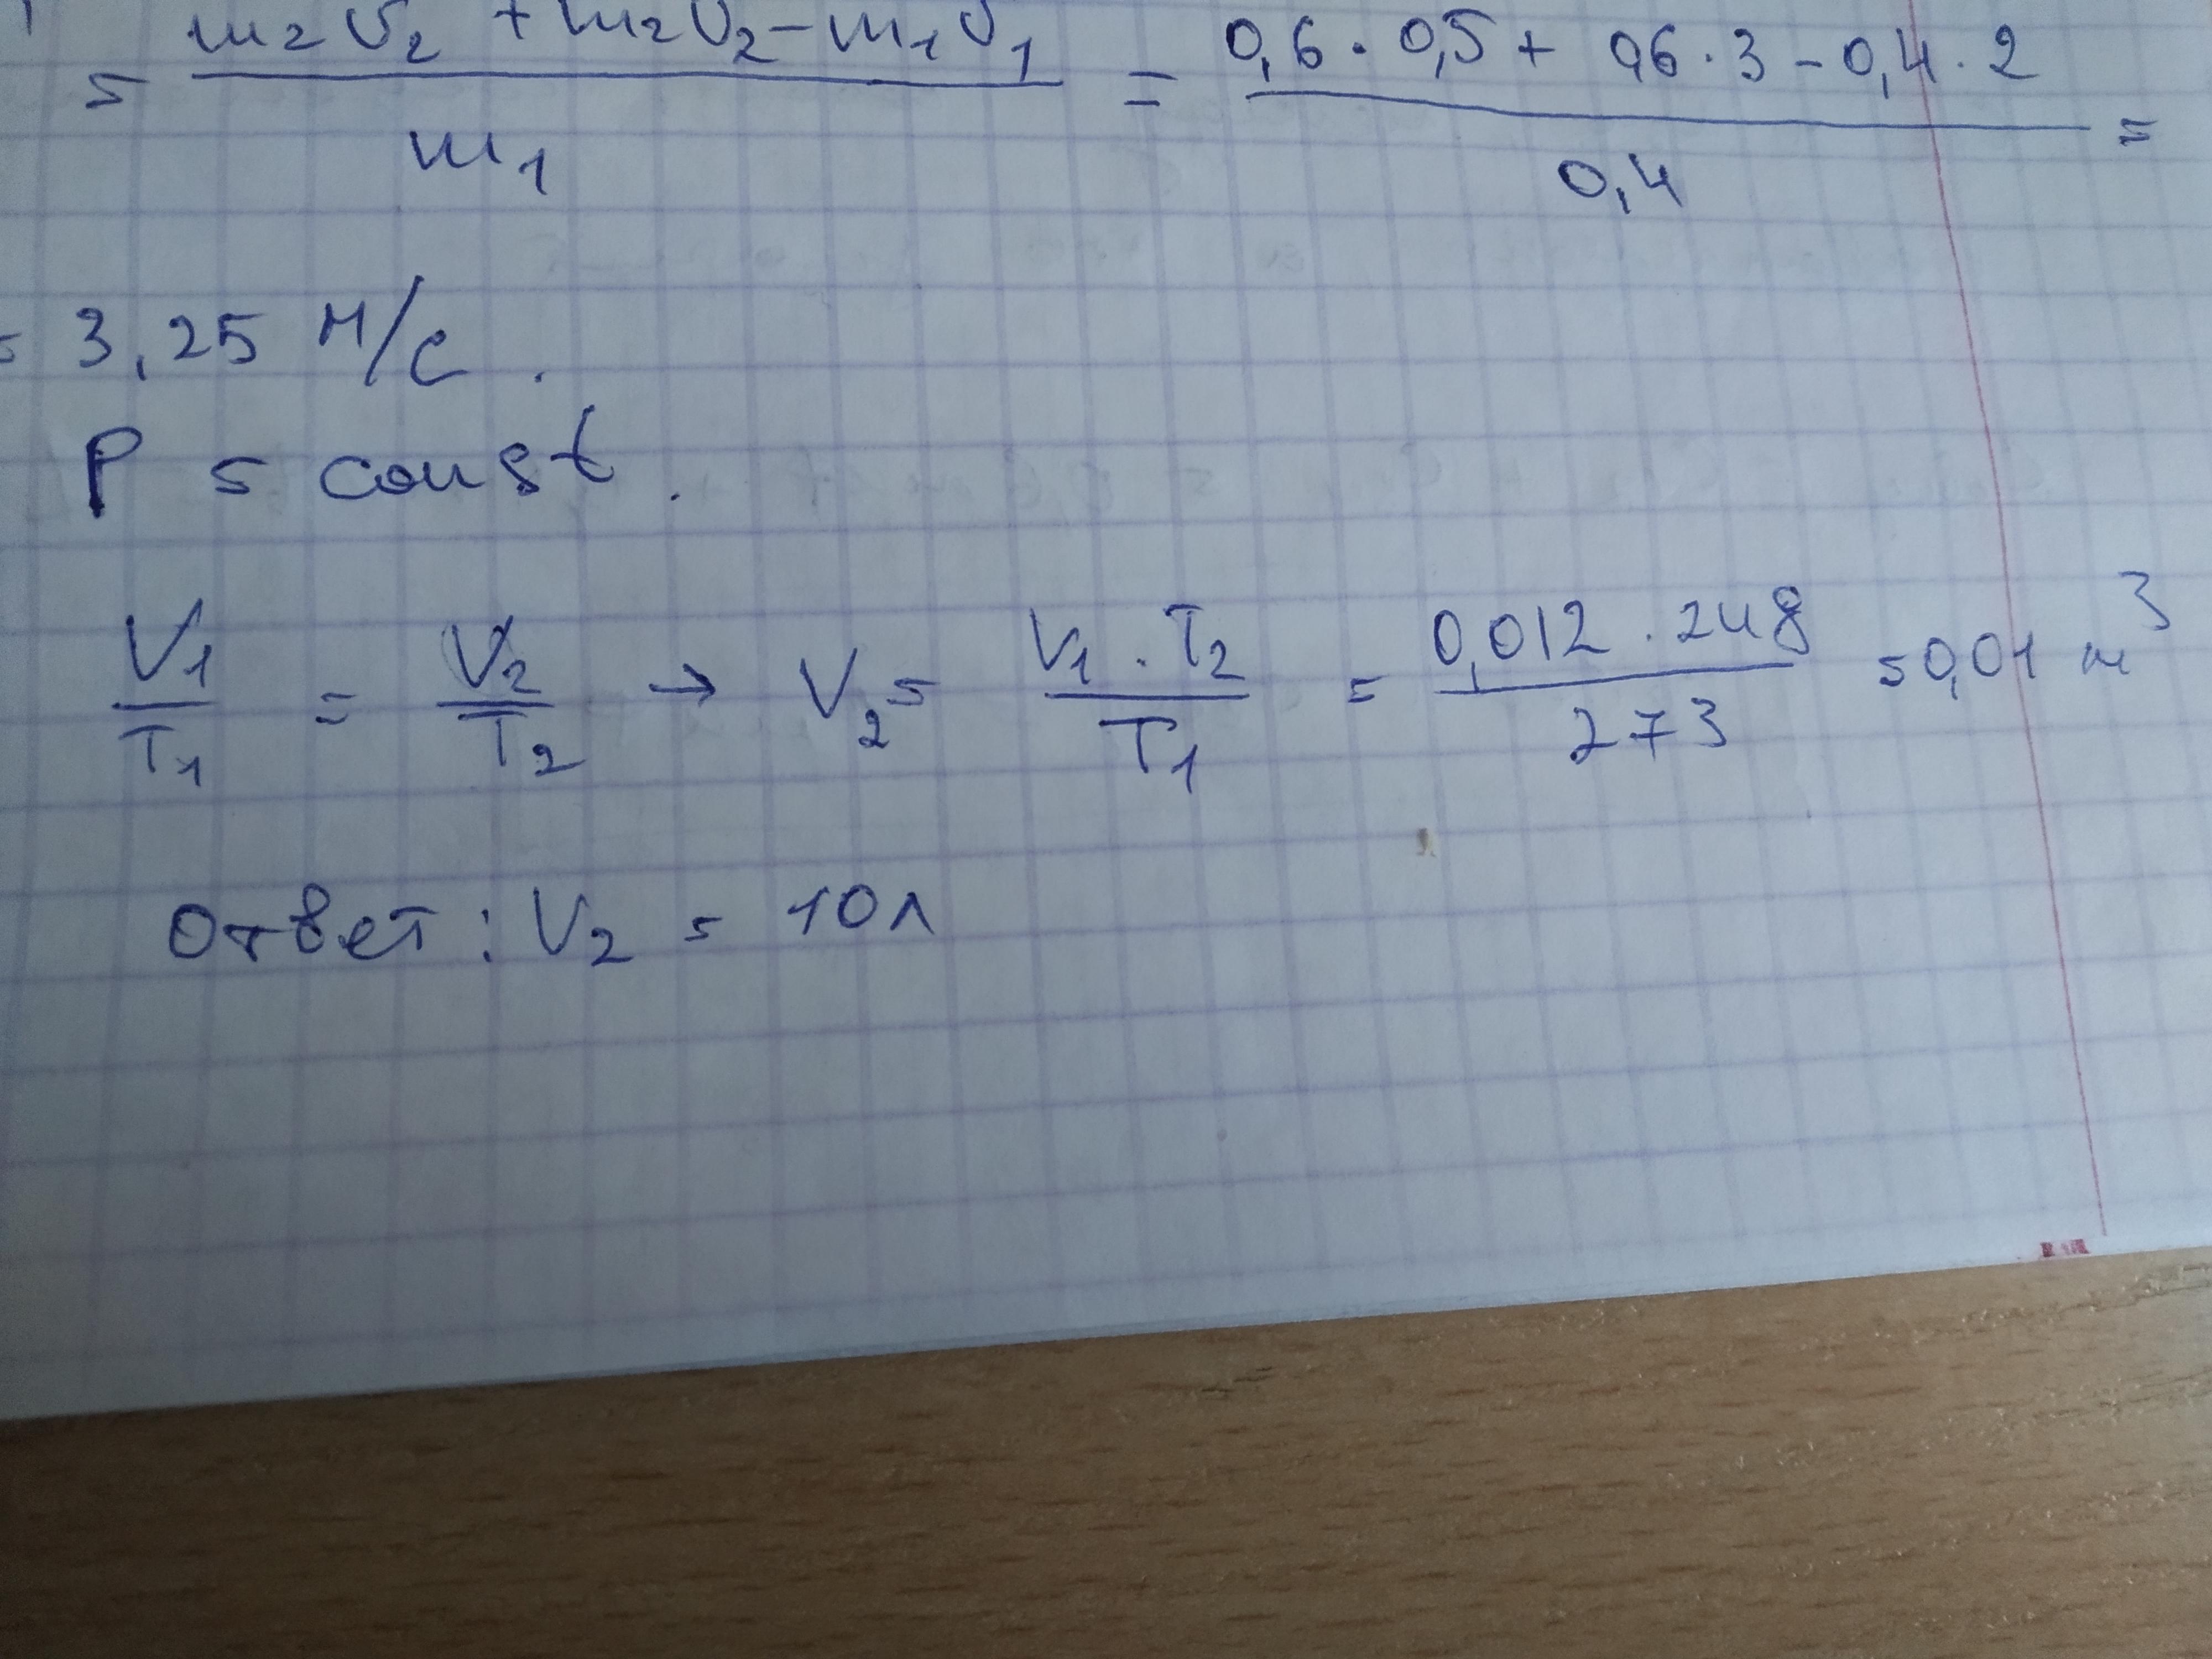 = (m₂v₂ + m₂v₂ - m₁v₁) / m₁ = (0,6 · 0,5 + 0,6 · 3 - 0,4 · 2) / 0,4 =
= 3,25 м/с.
P = const.
V₁/T₁ = V₂/T₂ → V₂ = (V₁ · T₂) / T₁ = (0,012 · 248) / 273 = 0,01 м³
Ответ: V₂ = 10л